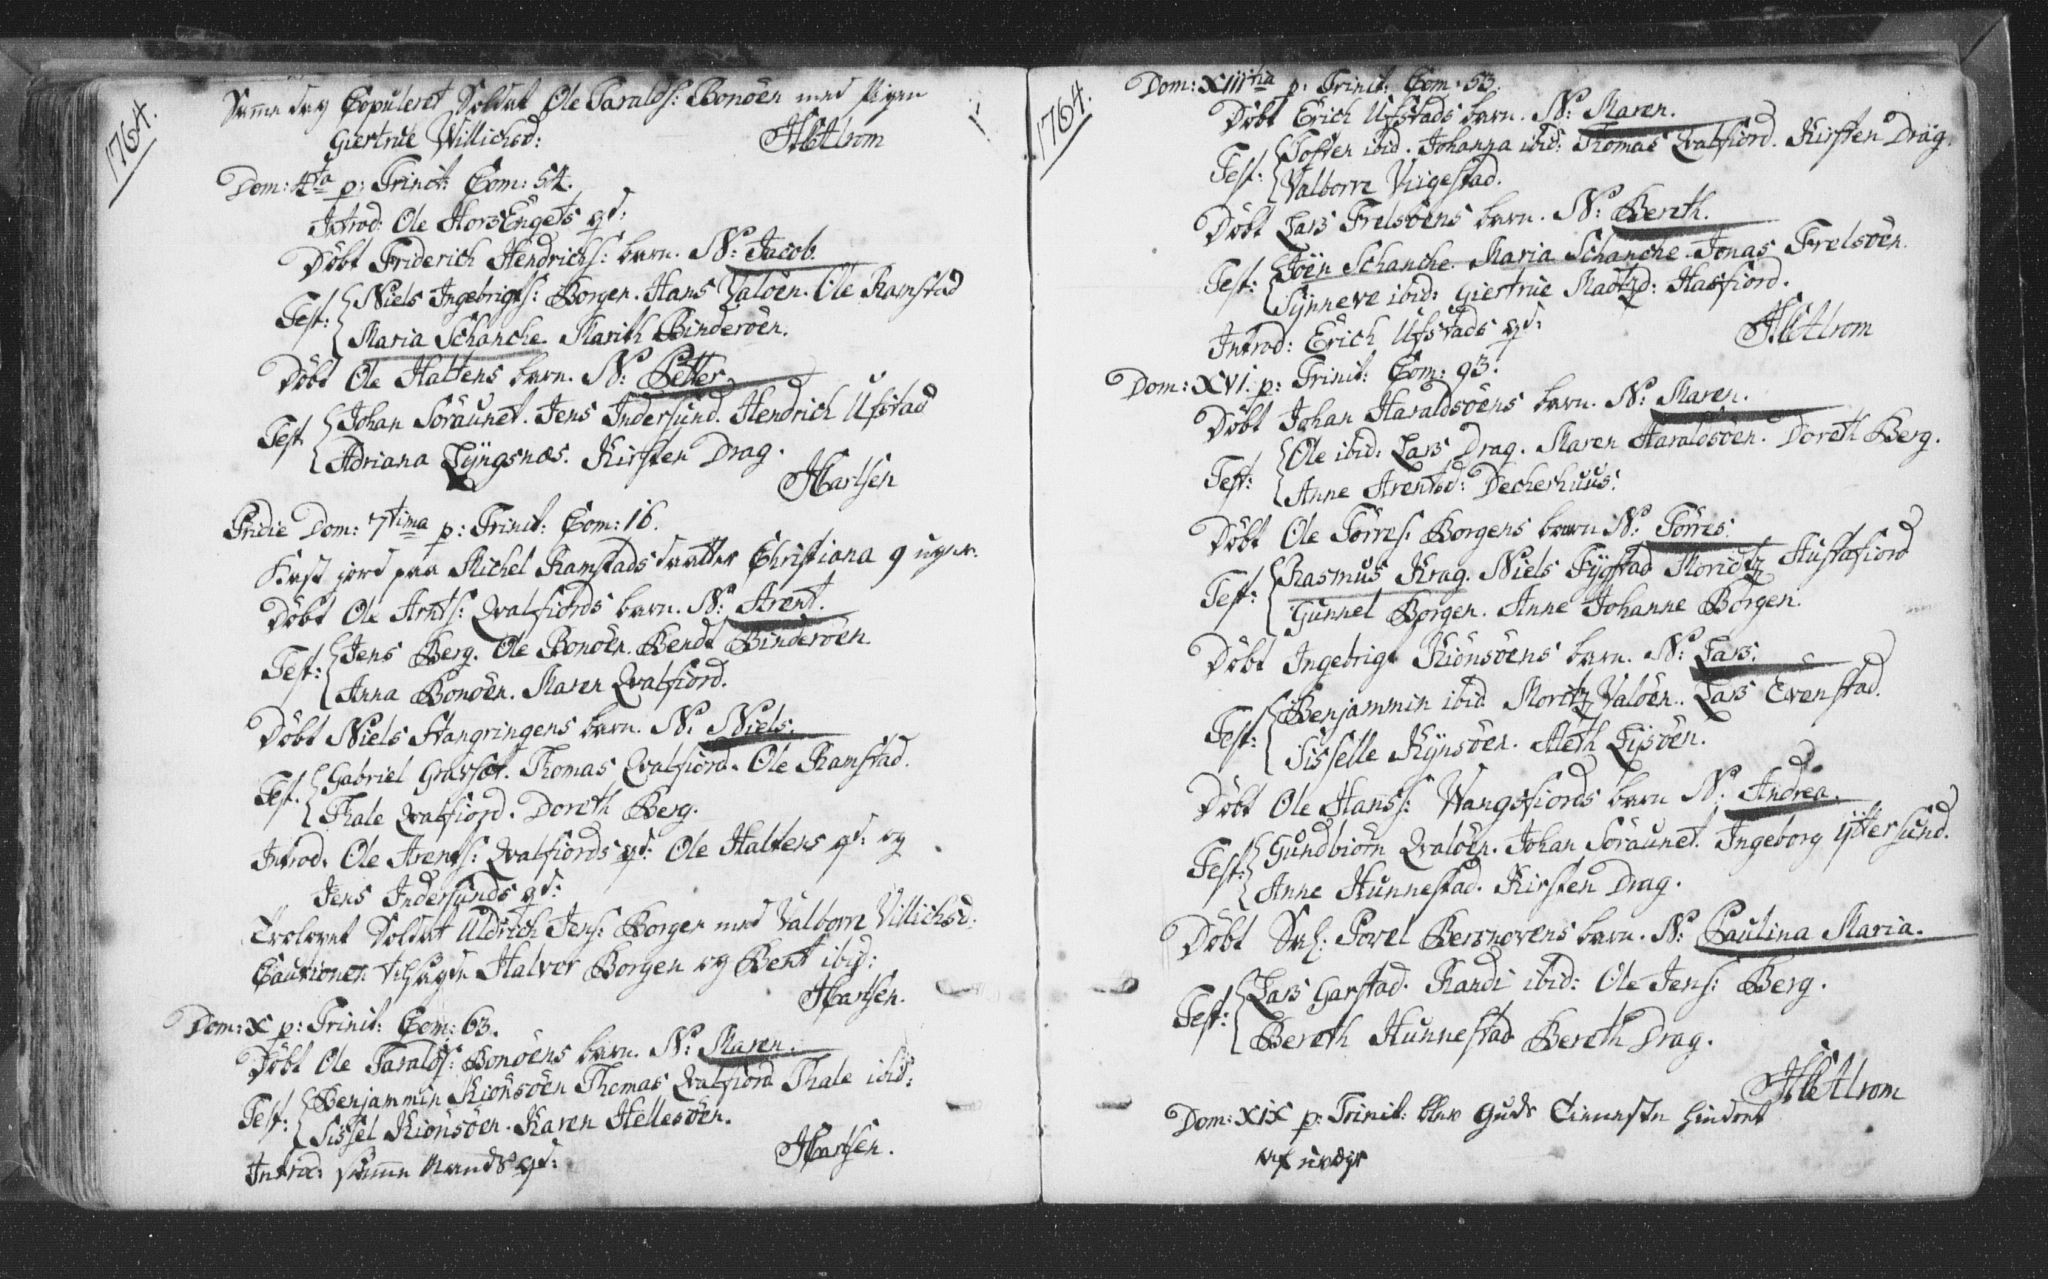 1764.
Samme dag Copuleret Soldat Ole Taralds: Bonöen med Pigen
Giertrue Willichsd:
HMAlrom
Dom: 4ta p: Trinit: Com: 54.
Introd: Ole HorsEngets qd:
Döbt Friderich Hendrichs: barn. N: Jacob.
Test: Niels Ingebrigts: Borgen. Hans Valöen. Ole Ramstad
Maria Schanche. Marith Binderöen.
Döbt Ole Haltens barn. N: Petter.
Test Johan Söraunet. Jens Indersund. Hendrich Ufstad
Adriana Lÿngsnæs. Kirsten Drag.
HCarlsen
Pridie Dom: 7tima p: Trinit: Com: 16.
Kast jord paa Michel Ramstads daatter Christiana 9 uger.
Döbt Ole Arnts: Qvalfiords barn. N: Arent.
Test: Jens Berg. Ole Bonöen. Bendt Binderöen.
Anna Bonöen. Maren Qvalfiord.
Döbt Niels Stangringens barn. N: Niels.
Test. Gabriel Gravset. Thomas Qvalfiord. Ole Ramstad.
Thale Qvalfiord. Doreth Berg.
Introd. Ole Arents: Qvalfiords qd: Ole Haltens qd: og
Jens Indersunds qd:
Trolovet Soldat Uldrich Jens: Borgen med Valborre Villichsd:
Cautioner. Halver Borgen og Bent ibid:
HCarlsen.
Dom: X p: Trinit: Com: 63.
Döbt Ole Taralds: Bonöens barn. N: Maren.
Test: Benjammin Kiönsöen Thomas Qvalfiord Thale ibid:
Sissel Kiönsöen. Karen Hellesöen.
Introd: samme Mands qd:
HCarlsen.
1764.
Dom: XIIItia p: Trinit: Com. 53.
Döbt Erich Ufstads barn. N: Maren.
Test: Tosten ibid. Johanna ibid: Thomas Qvalfiord. Kirsten Drag.
Valborre Viigestad.
Döbt Lars Frelsöens barn. N: Bereth.
Test: Schanche. Maria Schanche. Jonas Frelsöen.
Sÿnneve ibid: Giertrue Hasfiord.
Introd: Erich Ufstads qd:
HMAlrom
Dom: XVI. p: Trinit: Com: 93.
Döbt Johan Haraldsöens barn. N: Maren.
Test: Ole ibid: Lars Drag. Maren Haraldsöen. Doreth Berg.
Anne Arentsd: Decherhuus.
Döbt Ole Törres: Borgens barn N: Törres.
Test: Rasmus Krag. Niels Fÿgstad Moridtz Hustafiord
Gunnel Borgen. Anne Johanne Borgen.
Döbt Ingebrigt Kiönsöens barn. N: Lars.
Test: Benjammin ibid Moritz Valöen. Lars Evenstad.
Sisselle Kÿnsöen. Aleth Lÿsöen.
Döbt Ole Hanss: Wangsfiords barn N: Andrea.
Test: Gundbiörn Qvalöen. Johan Söraunet. Ingeborg ÿttersund.
Anne Hunnestad. Kirsten Drag.
Döbt Povel barn. N: Paulina Maria.
Test: Lars Garstad. Randi ibid: Ole Jens: Berg.
Bereth Hunnestad Bereth Drag.
HMAlrom
Dom: XIX p: Trinit: blev Guds Tienneste hindret
af uvæyr